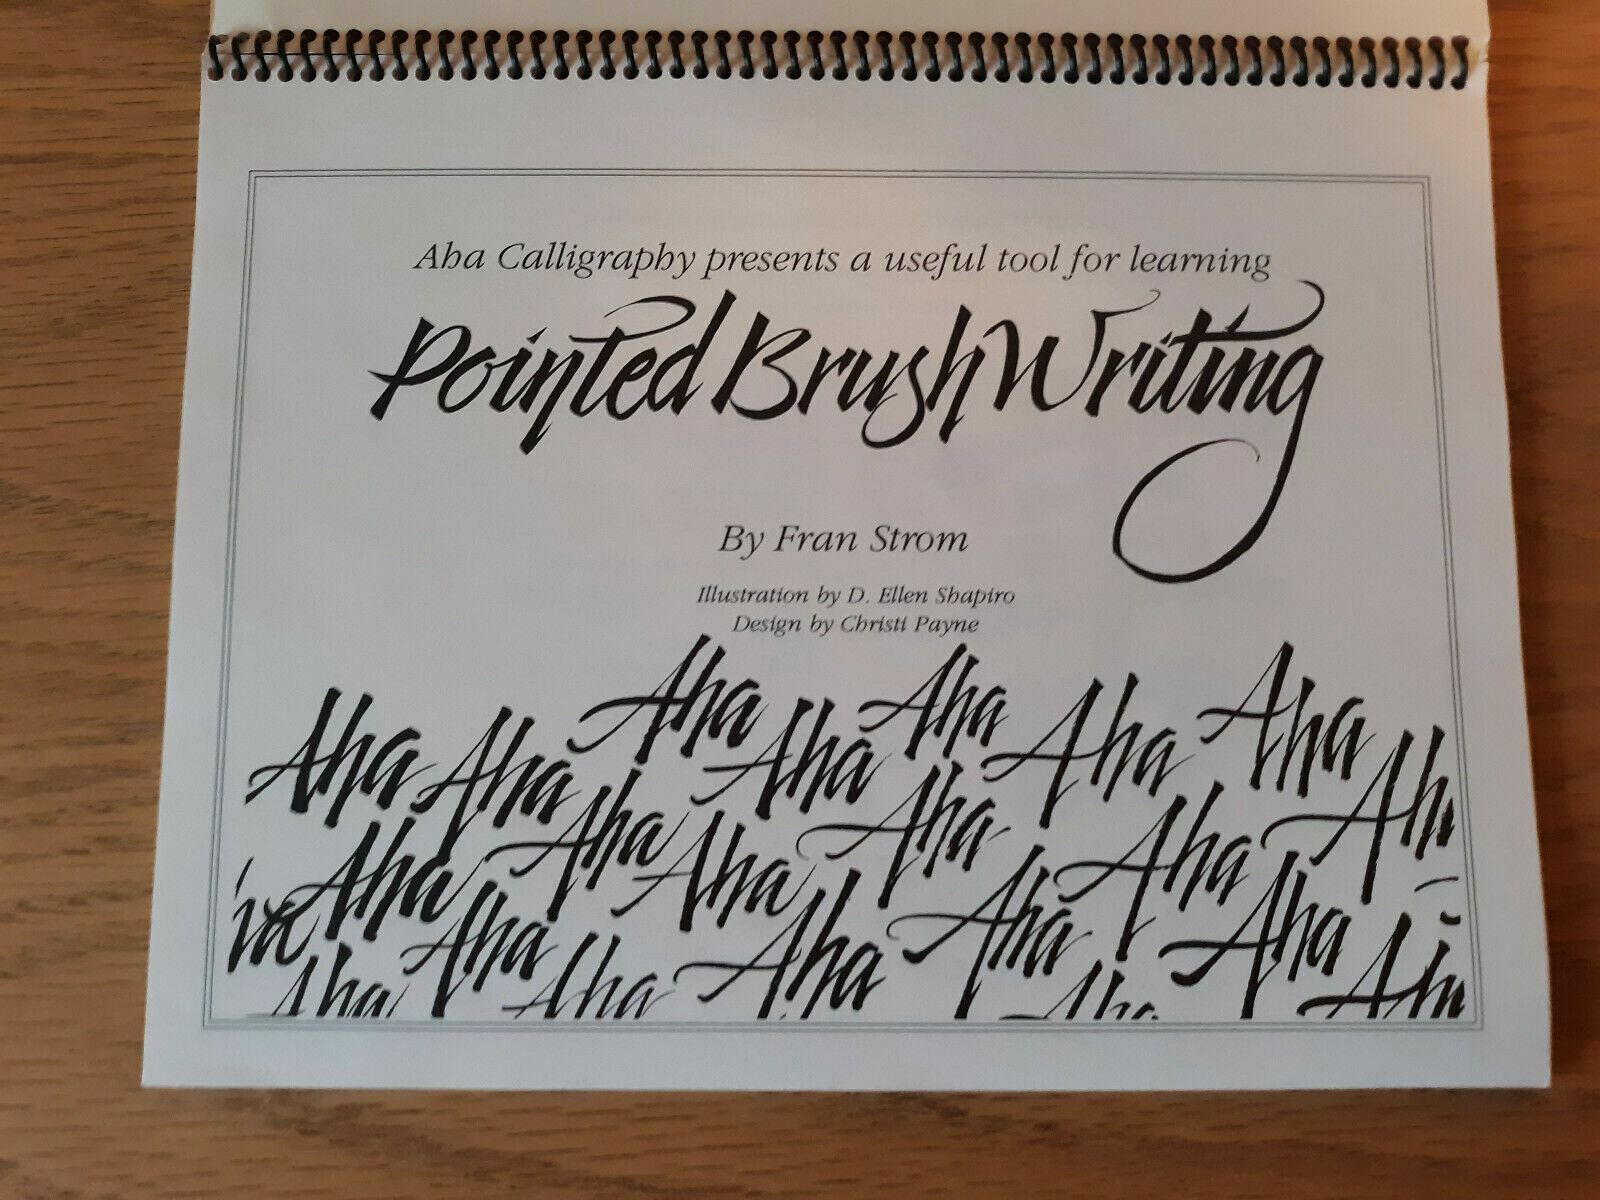 Aha Calligraphy presents a useful tool for learning
Pointed Brush Writing
By Fran Strom
Illustration by D. Ellen Shapiro
Design by Christi Payne
Aha Aha Aha
Aha Aha Aha Aha
Aha Aha Aha Aha
Aha Aha Aha Aha
Aha Aha Aha Aha
Aha Aha Aha